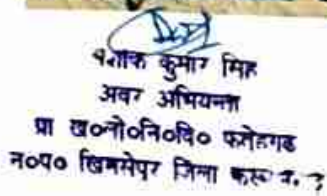 कुमार सिंह
अवर अभियन्ता
प्रा ख०लो०नि०वि० फतेहगढ
न०प० खिमसेपुर जिला